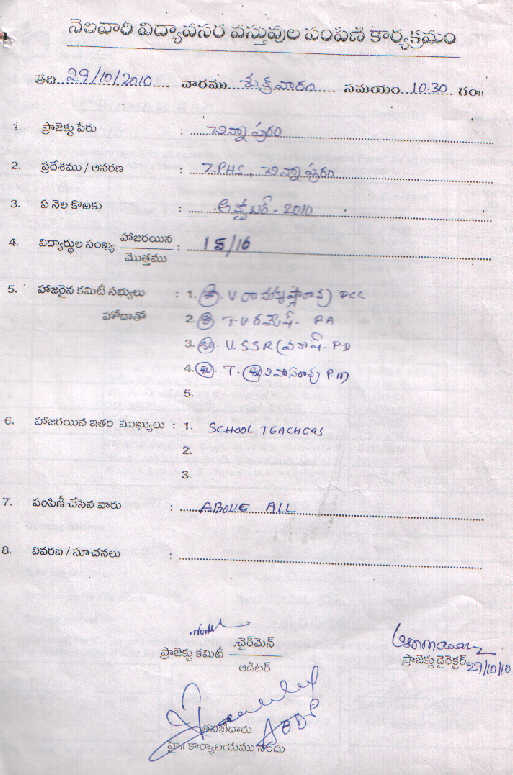 నెలవారి విద్యావసర వస్తువుల పంపిణి కార్యక్రమం
తేది 29/10/2010 వారము శుక్రవారం సమయం 10.30 గం॥
1. ప్రాజెక్టు పేరు : చిన్నాపురం
2. ప్రదేశము / ఆవరణ : ZPHS, చిన్నాపురం
3. ఏ నెల కొరకు : అక్టోబర్ - 2010
4. విద్యార్థుల సంఖ్య హాజరయిన / మొత్తము : 15/16
5. హాజరైన కమిటీ సభ్యులు : 1. శ్రీ. V
హోదాతో 2. శ్రీ T.V రమేష్ - PA
3. శ్రీ U.S.S.R ప్రకాష్ - PD
4. శ్రీ. T.
5.
6. హాజరయిన ఇతర ముఖ్యులు : 1. SCHOOL TEACHERS
2.
3.
7. పంపిణీ చేసిన వారు : ABOVE ALL
8. వివరణ / సూచనలు :
ప్రాజెక్టు కమిటీ చైర్‌మెన్ / ఆడిటర్
ప్రాజెక్టు డైరెక్టర్
29/10/10
కార్యాలయము